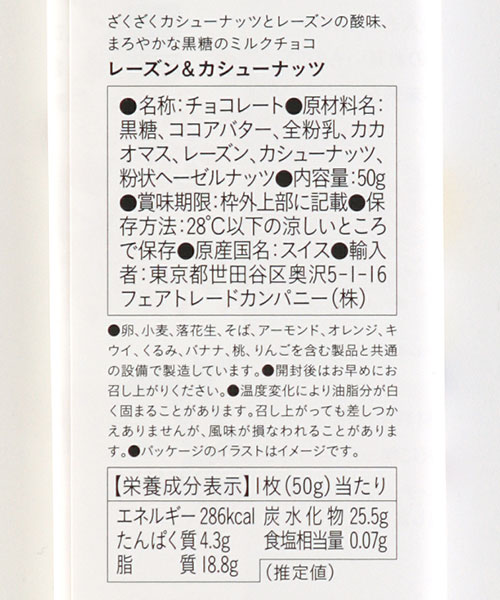 ざくざくカシューナッツとレーズンの酸味、
まろやかな黒糖のミルクチョコ
レーズン&カシューナッツ
●名称:チョコレート●原材料名:
黒糖、ココアバター、全粉乳、カカ
オマス、レーズン、カシューナッツ、
粉状ヘーゼルナッツ●内容量:50g
●賞味期限:枠外上部に記載●保
存方法:28℃以下の涼しいところ
で保存●原産国名:スイス●輸入
者:東京都世田谷区奥沢5-1-16
フェアトレードカンパニー(株)
●卵、小麦、落花生、そば、アーモンド、オレンジ、キ
ウイ、くるみ、バナナ、桃、りんごを含む製品と共通
の設備で製造しています。●開封後はお早めにお
召し上がりください。●温度変化により油脂分が白
く固まることがあります。召し上がっても差しつか
えありませんが、風味が損なわれることがありま
す。●パッケージのイラストはイメージです。
【栄養成分表示】1枚(50g)当たり
エネルギー286kcal 炭水化物 25.5g
たんぱく質 4.3g 食塩相当量 0.07g
脂質 18.8g (推定値)